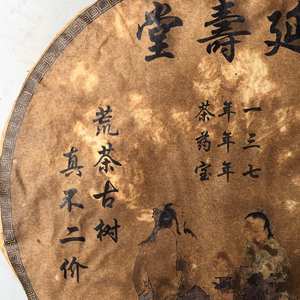 延壽堂
一年茶
三年药
七年宝
荒茶古树
真不二价